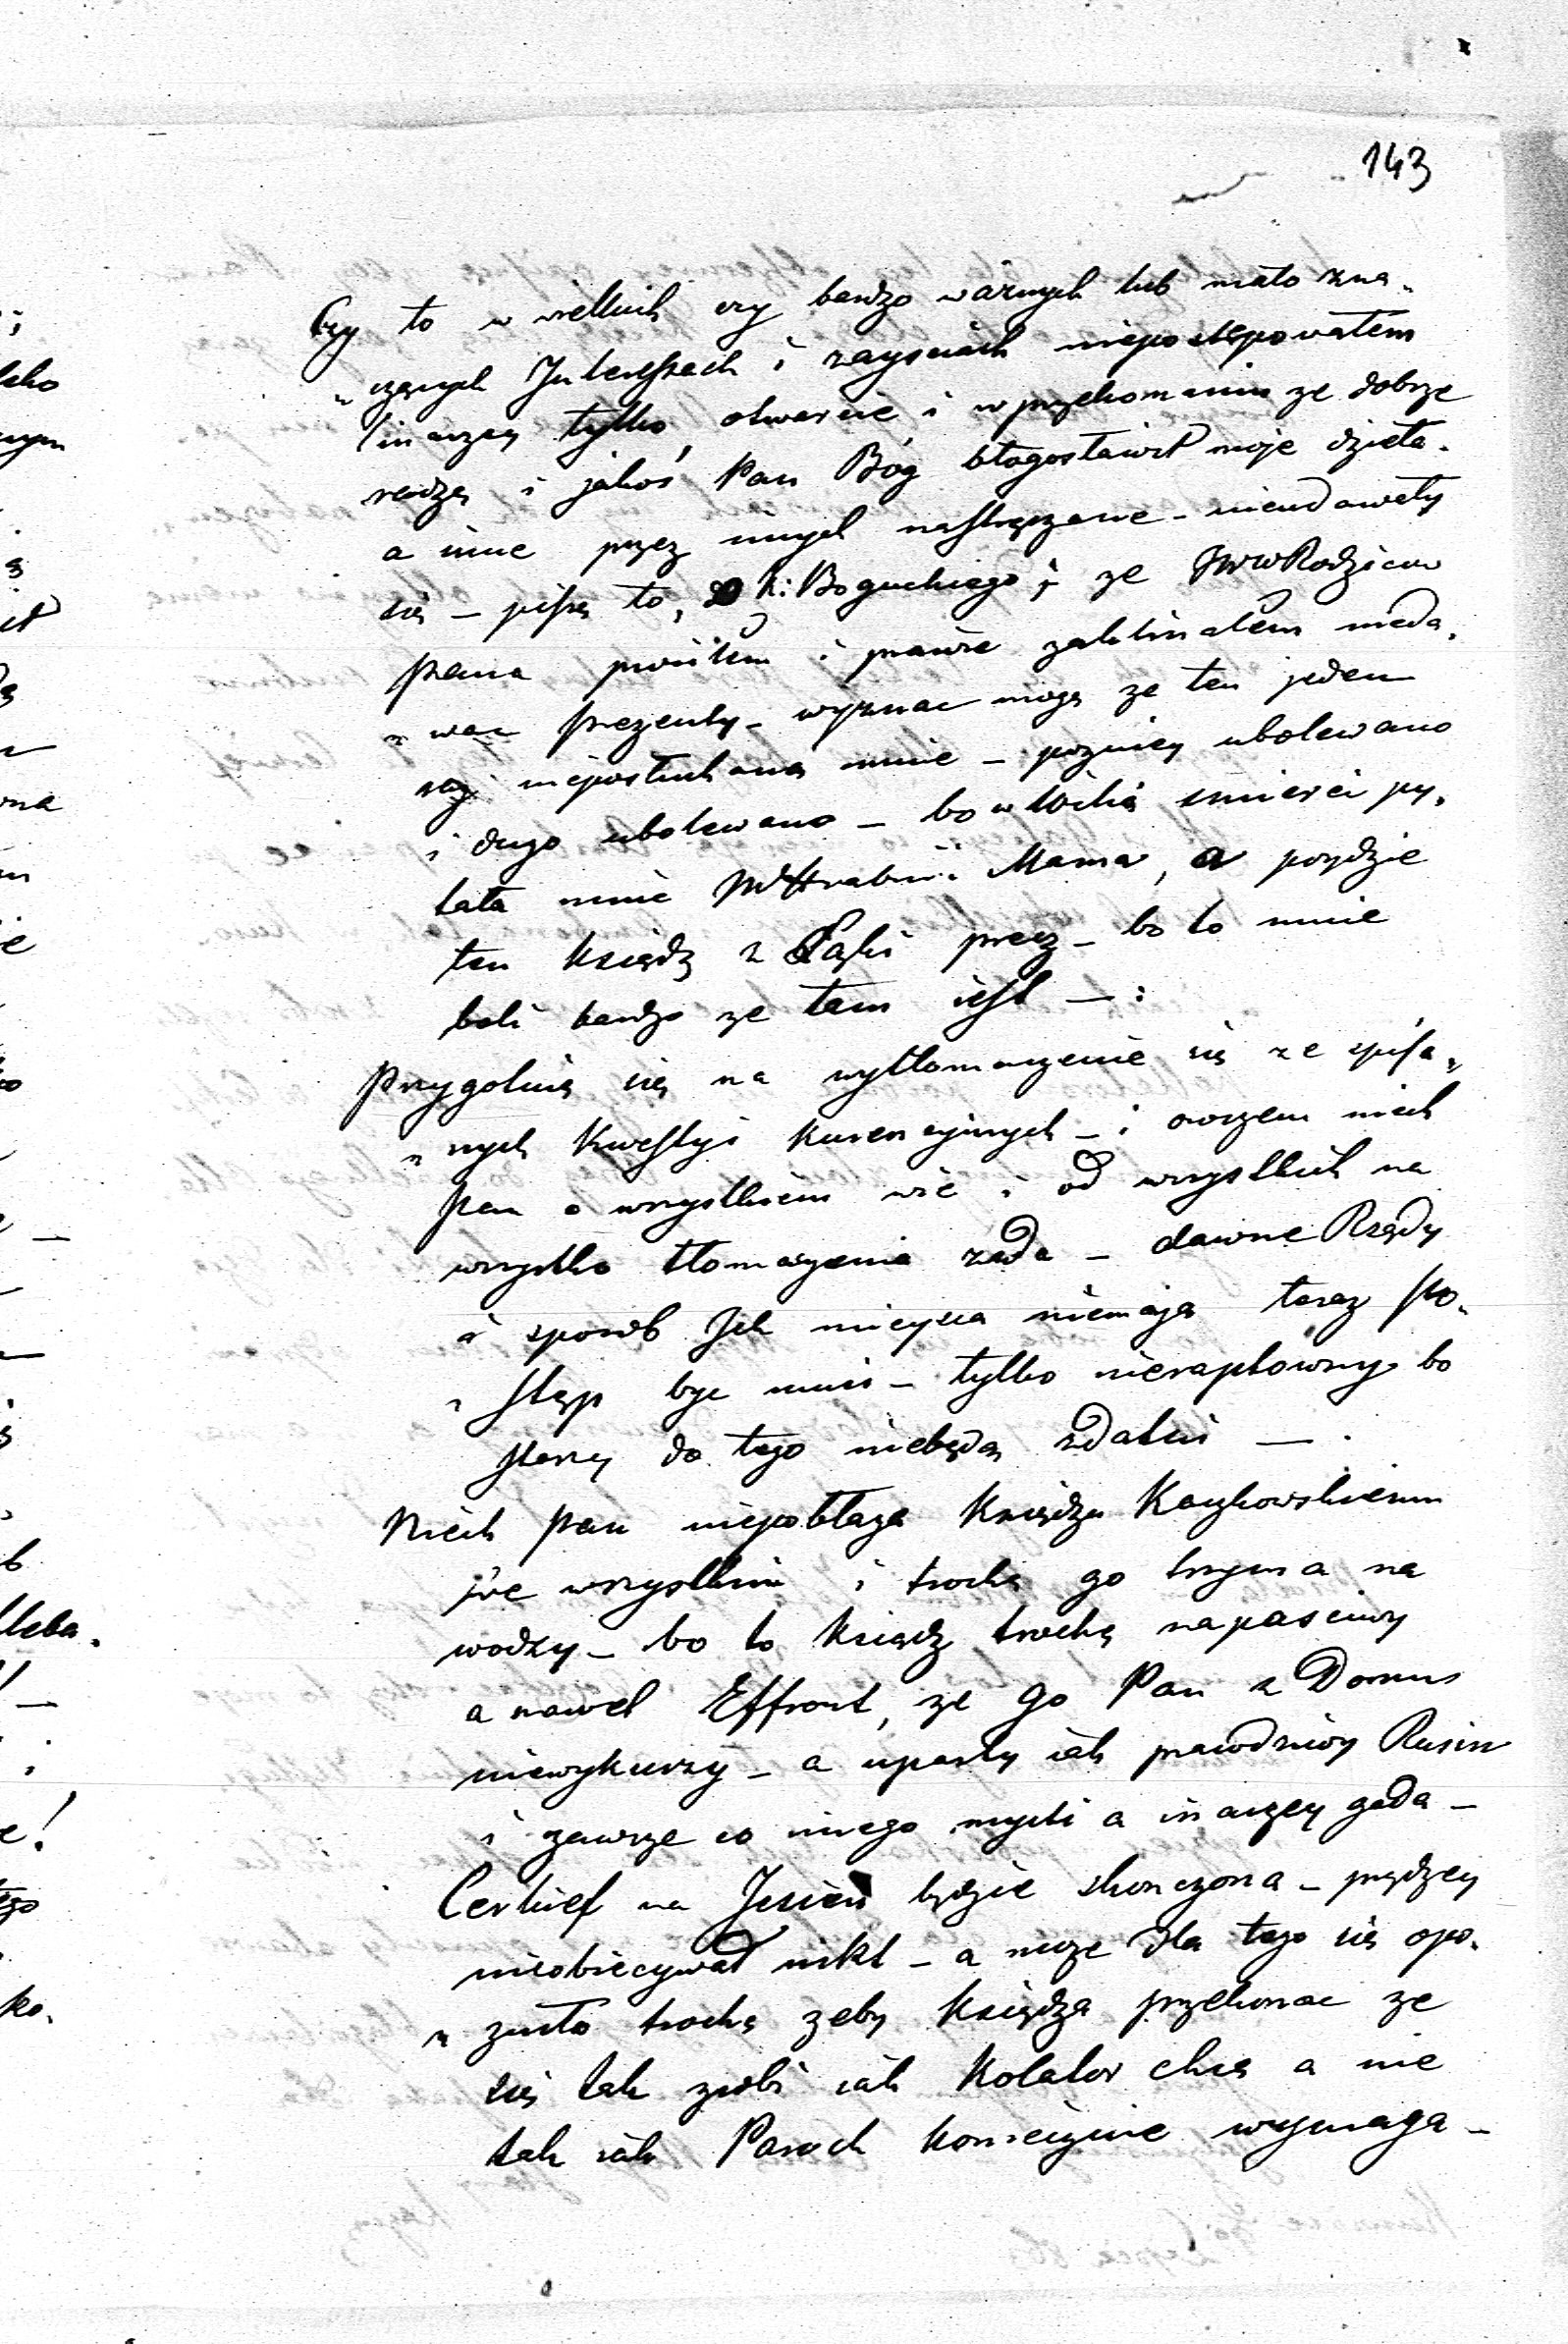 143
Czy to w wielkich czy bardzo ważnych lub mało zna„
„czących Interessach i zayściach niepostępowałem
inaczey tylko, otwarcie i w przekonaniu ze dobrze
radzę i jakoś Pan Bóg błogosławił moje dzieła.
a inne przez innych nastręczane – nieudawały
się – piszę to, X. Boguckiego; ze JWW Rodzicow
Pana prosiłem i prawie zaklinałem nieda„
„wac prezenty – wyznac mogę ze ten jeden
raz nieposłuchano mnie – pozniey ubolewano
i długo ubolewano – bo w Wilią smierci py„
tała mnie JW Hrabini Mama, a poydzie
ten Ksiądz z precz – bo to mnie
boli bardzo ze tam iest — :
Przygotuię się na wytłomaczenie się ze spisa„
„nych Kwestyi Kurencyinych – i owszem niech
Pan o wszystkiem wie i od wszystkich na
wszystko tłomaczenia rząda – dawne Rządy
i sposob Ich mieysca niemaja teraz po„
„stęp byc musi – tylko nieraptowny bo
starzy do tego niebędą zdatni — .
Niech Pan niepobłaza Księdzu Kaczkowskiemu
we wszystkim i trochę go trzyma na
wodzy – bo to Ksiądz trochę napasciwy
a nawet Effront, ze go Pan z Domu
niewykurzy – a uparty iak prawdziwy Rusin
i zawsze co innego mysli a inaczey gada –
Cerkief na Jesień będzie skonczona – prędzey
nieobiecywał nikt – a moze dla tego się opo„
„zniło trochę zeby Księdza przekonac ze
się tak zrobi iak Kolator chce a nie
tak iak Paroch koniecznie wymaga –